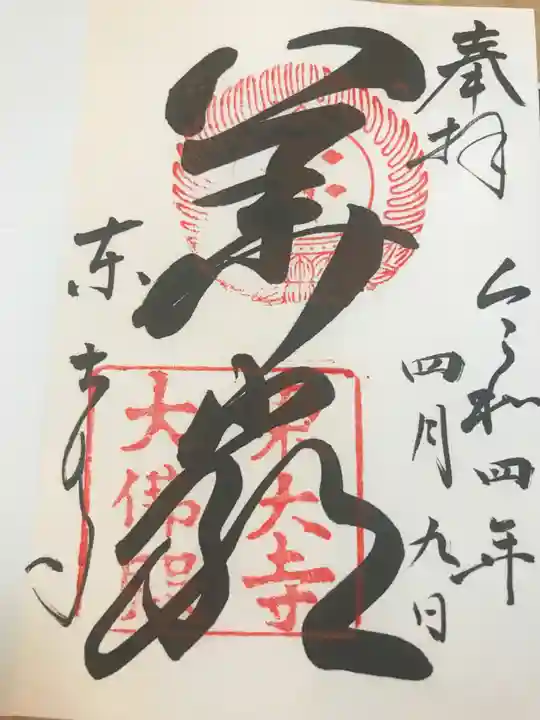 奉拝
令和四年
四月九日
華厳
東大寺
大佛殿
東大寺